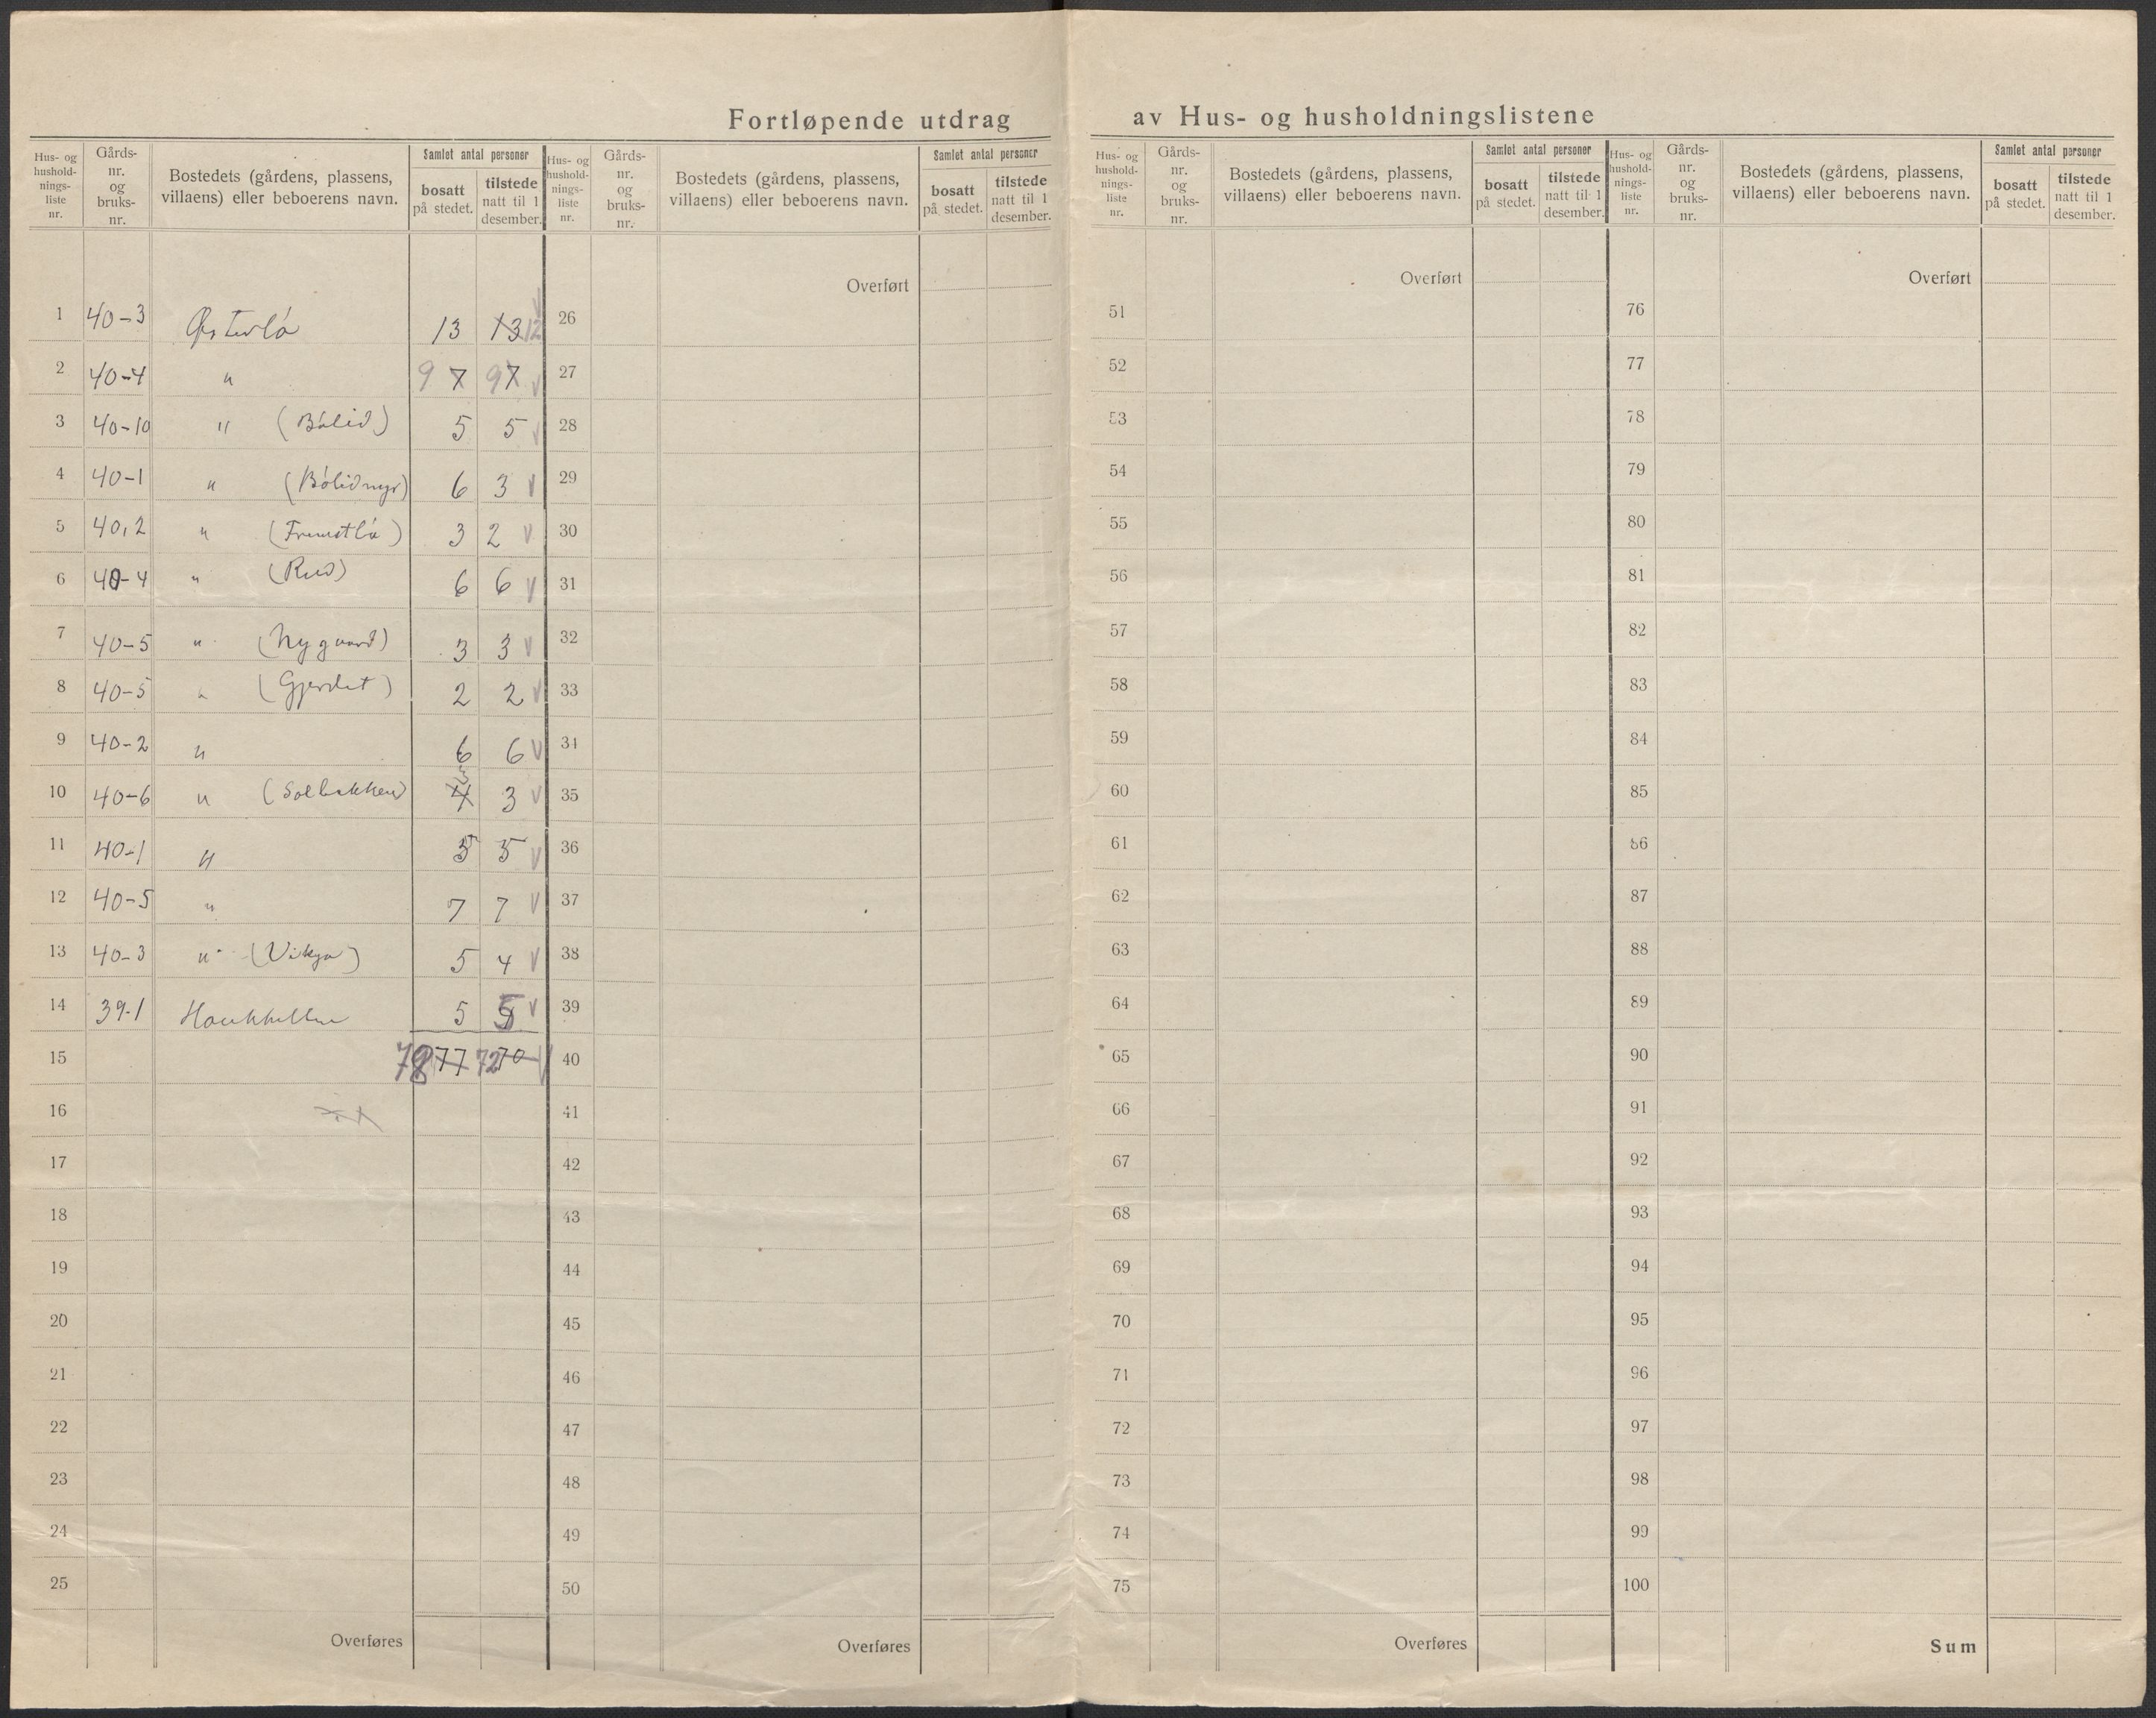 Fortløpende utdrag av Hus- og husholdningslistene
Hus- og hushold-nings-liste nr. Gårds-nr. og bruks-nr. Bostedets (gårdens, plassens, villaens) eller beboerens navn. Samlet antal personer bosatt på stedet. tilstede natt til 1 desember.
1 40-3 Østerlö 13 13 12
2 40-4 " 9 7 9 7 v
3 40-10 " (Bólid) 5 5 v
4 40-1 " (Bólidmyr) 6 3 v
5 40,2 " (Fremstlö) 3 2 v
6 40-4 " (Rud) 6 6 v
7 40-5 " (Nygaard) 3 3 v
8 40-5 " (Gjerdet) 2 2 v
9 40-2 " 6 6 v
10 40-6 " (Solbakken) 4 3 3 v
11 40-1 " 5 5 v
12 40-5 " 7 7 v
13 40-3 " (Vikja) 5 4 v
14 39-1 5 5 v
15 78 77 72 70 v
16
17
18
19
20
21
22
23
24
25
Overføres
Hus- og hushold-nings-liste nr. Gårds-nr. og bruks-nr. Bostedets (gårdens, plassens, villaens) eller beboerens navn. Samlet antal personer bosatt på stedet. tilstede natt til 1 desember.
Overført
26
27
28
29
30
31
32
33
34
35
36
37
38
39
40
41
42
43
44
45
46
47
48
49
50
Overføres
Hus- og hushold-nings-liste nr. Gårds-nr. og bruks-nr. Bostedets (gårdens, plassens, villaens) eller beboerens navn. Samlet antal personer bosatt på stedet. tilstede natt til 1 desember.
Overført
51
52
53
54
55
56
57
58
59
60
61
62
63
64
65
66
67
68
69
70
71
72
73
74
75
Overføres
Hus- og hushold-nings-liste nr. Gårds-nr. og bruks-nr. Bostedets (gårdens, plassens, villaens) eller beboerens navn. Samlet antal personer bosatt på stedet. tilstede natt til 1 desember.
Overført
76
77
78
79
80
81
82
83
84
85
86
87
88
89
90
91
92
93
94
95
96
97
98
99
100
Sum